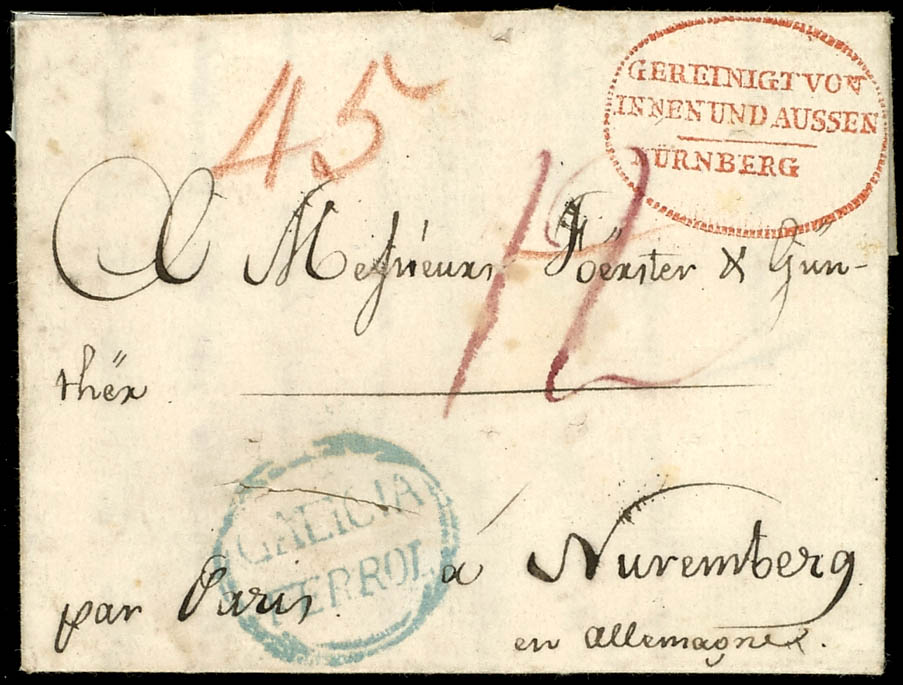 45
GEREINIGT VON
INNEN UND AUSSEN
NÜRNBERG
12
A Messieurs Foerster & Gün-
ther
GALICIA
FERROL
par Paris. à Nuremberg
en allemagne.